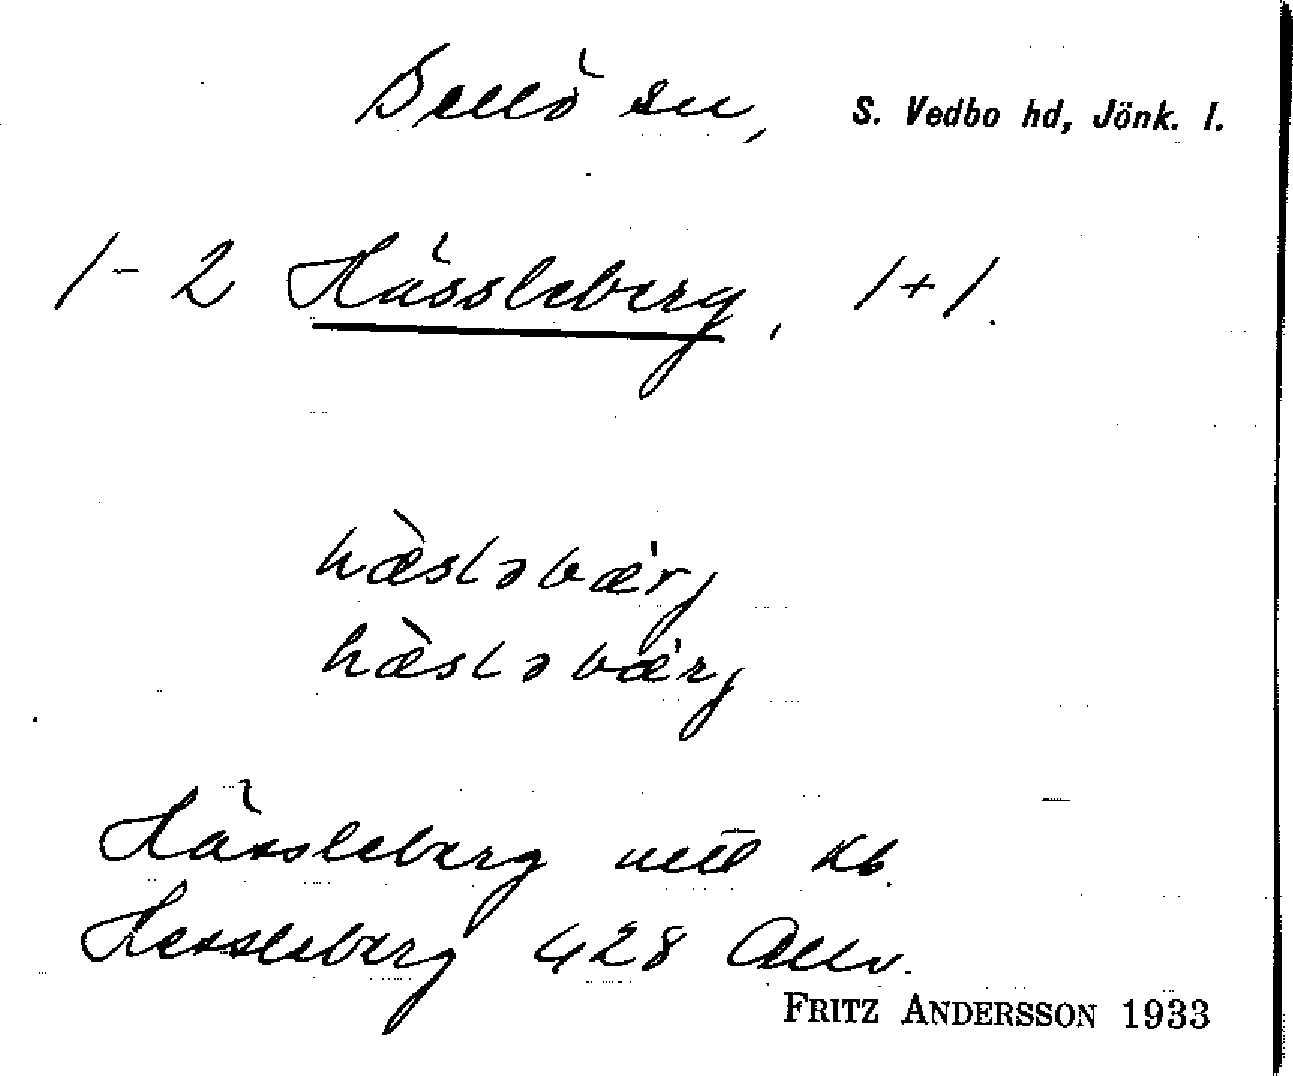 Bellö sn, S. Vedbo hd, Jönk. l.
1-2 Hässleberg, 1+1.
hæ̀sləbæ'rj
hæ̀sləbæ'rj
Hässleberg utt kb.
Hessleberg 428 Allv.
FRITZ ANDERSSON 1933